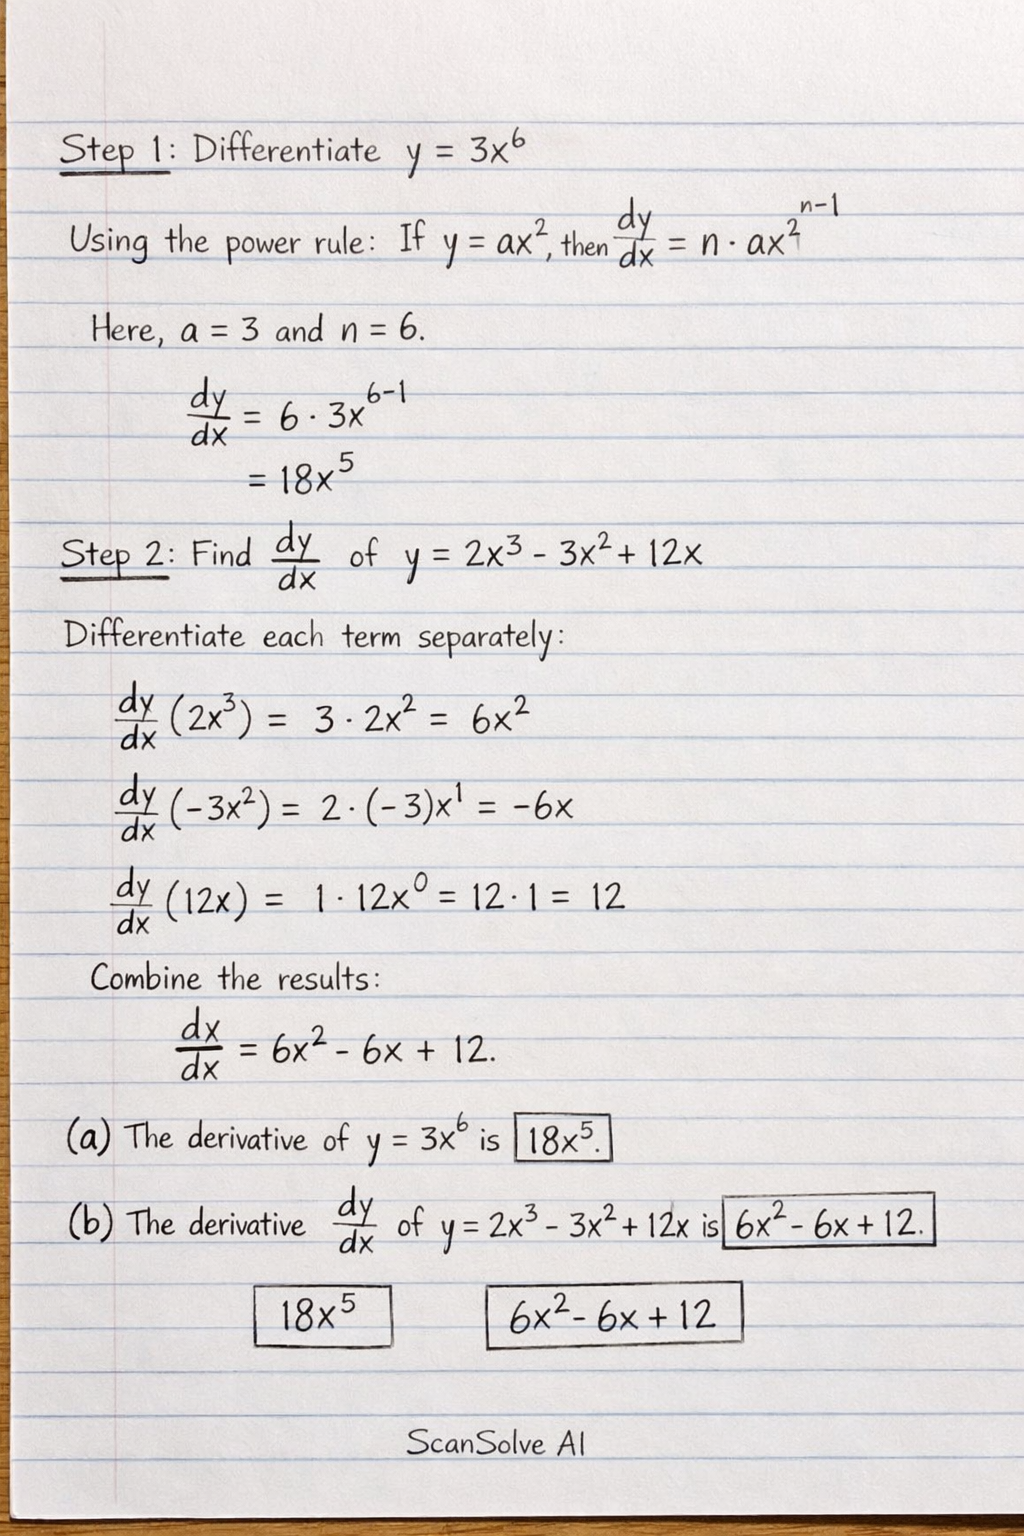 Step 1: Differentiate y = 3x⁶
Using the power rule: If y = ax², then dy/dx = n · ax²ⁿ⁻¹
Here, a = 3 and n = 6.
dy/dx = 6 · 3x⁶⁻¹
= 18x⁵
Step 2: Find dy/dx of y = 2x³ - 3x² + 12x
Differentiate each term separately:
dy/dx (2x³) = 3 · 2x² = 6x²
dy/dx (-3x²) = 2 · (-3)x¹ = -6x
dy/dx (12x) = 1 · 12x⁰ = 12 · 1 = 12
Combine the results:
dx/dx = 6x² - 6x + 12.
(a) The derivative of y = 3x⁶ is 18x⁵.
(b) The derivative dy/dx of y = 2x³ - 3x² + 12x is 6x² - 6x + 12.
18x⁵ 6x² - 6x + 12
ScanSolve AI